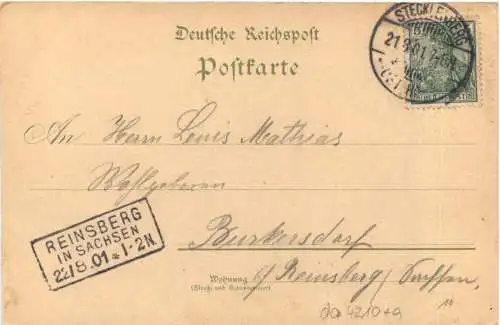 STECKLENBERG
21 8 01
Deutsche Reichspost
Postkarte
An Herrn Louis Mathias
Wohlgeboren
REINSBERG
IN SACHSEN
22/8.01 * 1-2N.
Burkersdorf
Wohnung
(Straße und Hausnummer)
b/ Reinsberg/Sachsen.
da 4210+a